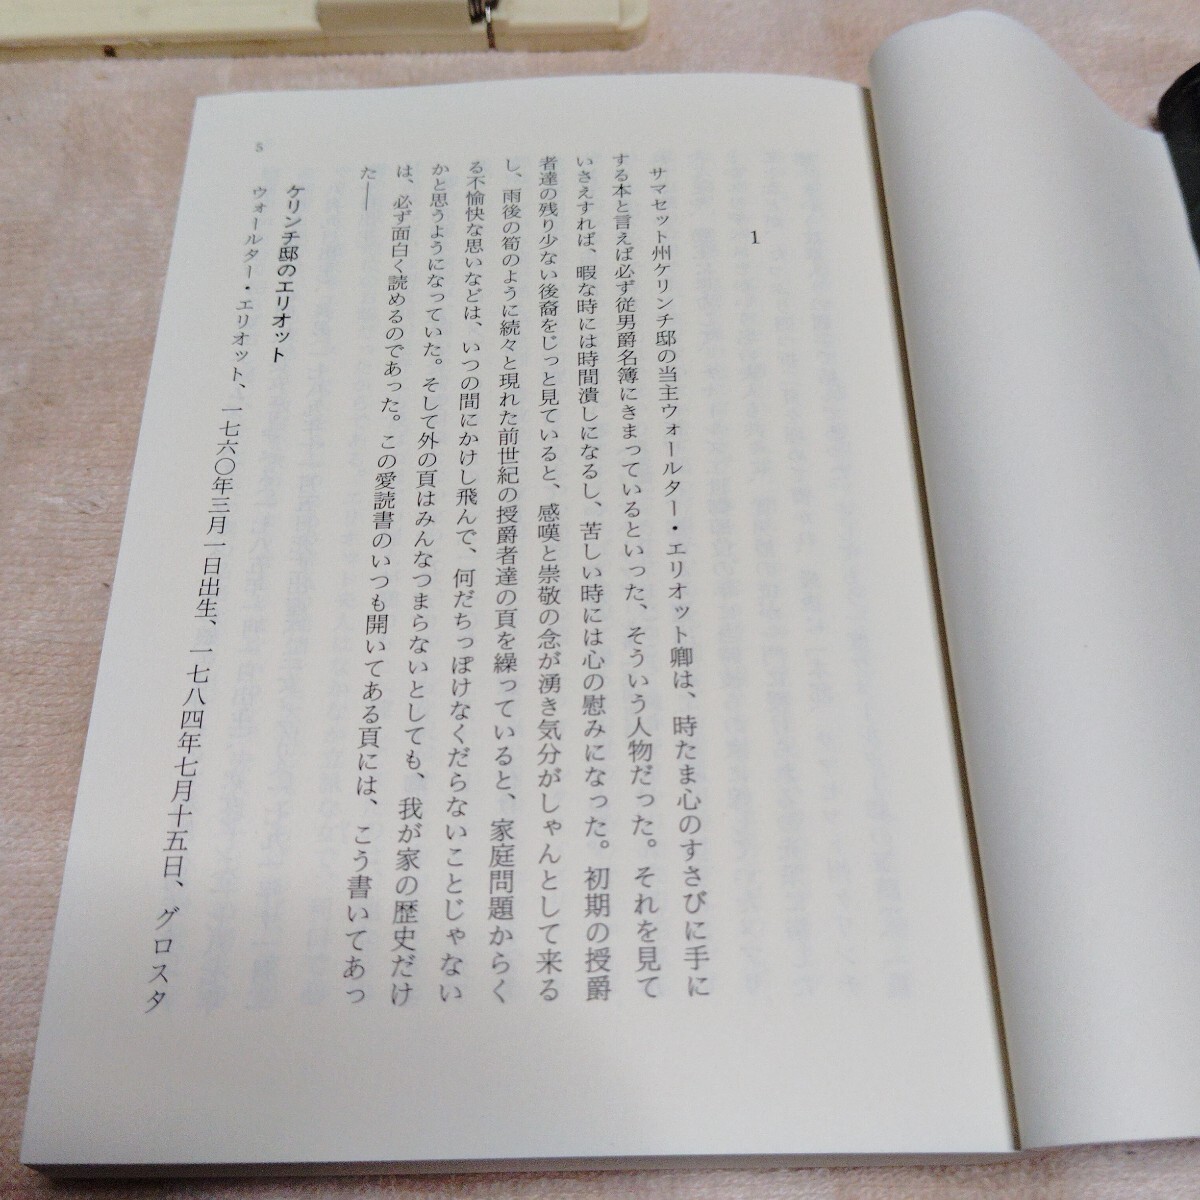 1
サマセット州ケリンチ邸の当主ウォールター・エリオット卿は、時たま心のすさびに手に
する本と言えば必ず従男爵名簿にきまっているといった、そういう人物だった。それを見て
いさえすれば、暇な時には時間潰しになるし、苦しい時には心の慰みになった。初期の授爵
者達の残り少ない後裔をじっと見ていると、感嘆と崇敬の念が湧き気分がしゃんとして来る
し、雨後の筍のように続々と現れた前世紀の授爵者達の頁を繰っていると、家庭問題からく
る不愉快な思いなどは、いつの間にかけし飛んで、何だちっぽけなくだらないことじゃない
かと思うようになっていた。そして外の頁はみんなつまらないとしても、我が家の歴史だけ
は、必ず面白く読めるのであった。この愛読書のいつも開いてある頁には、こう書いてあっ
た――
ケリンチ邸のエリオット
ウォールター・エリオット、一七六〇年三月一日出生、一七八四年七月十五日、グロスタ
5